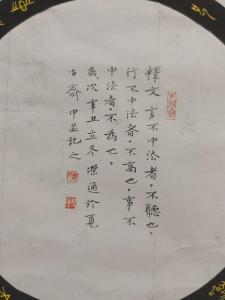 释文 言不中法者，不聽也，
行不中法者，不高也，事不
中法者，不為也。
歲次辛丑立冬 傑通於夏
古齋中並記之